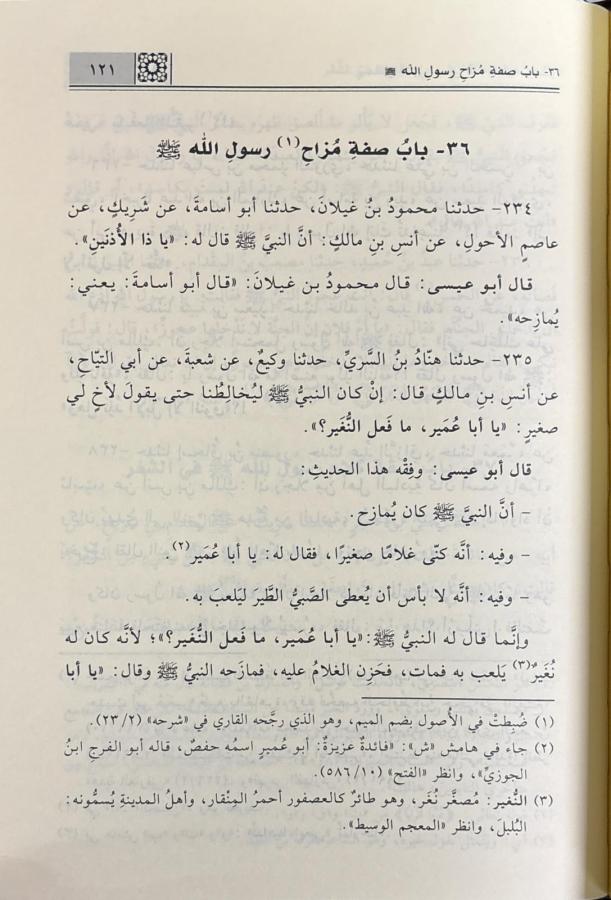 ٣٦- بابُ صفةِ مُزاحِ رسولِ الله ﷺ
١٢١
٣٦- بابُ صفةِ مُزاحِ(١) رسولِ الله ﷺ
٢٣٤- حدثنا محمودُ بنُ غيلانَ، حدثنا أبو أسامةَ، عن شَرِيكٍ، عن
عاصمٍ الأحولِ، عن أنسِ بنِ مالكٍ: أنَّ النبيَّ ﷺ قال له: «يا ذا الأُذنَينِ».
قال أبو عيسى: قال محمودُ بن غيلانَ: «قال أبو أسامةَ: يعني:
يُمازِحه».
٢٣٥- حدثنا هنّادُ بنُ السَريِّ، حدثنا وكيعٌ، عن شعبةَ، عن أبي التيّاحِ،
عن أنسِ بنِ مالكٍ قال: إنْ كان النبيُّ ﷺ ليُخالِطُنا حتى يقولَ لأخٍ لي
صغيرٍ: «يا أبا عُمَير، ما فَعل النُّغَير؟».
قال أبو عيسى: وفِقْه هذا الحديثِ:
– أنَّ النبيَّ ﷺ كان يُمازِح.
– وفيه: أنَّه كنّى غلامًا صغيرًا، فقال له: يا أبا عُمَير(٢).
– وفيه: أنَّه لا بأس أن يُعطى الصَّبيُّ الطَّير ليَلعبَ به.
وإنَّما قال له النبيُّ ﷺ: «يا أبا عُمَير، ما فعل النُّغَير؟»؛ لأنَّه كان له
نُغَيرٌ(٣) يَلعب به فمات، فحَزِن الغلامُ عليه، فمازَحه النبيُّ ﷺ وقال: «يا أبا
(١) ضُبِطتْ في الأُصول بضم الميم، وهو الذي رجَّحه القاري في «شرحه» (٢٣/٢).
(٢) جاء في هامش «ش»: «فائدةٌ عزيزةٌ: أبو عُميرٍ اسمُه حفصٌ، قاله أبو الفرجِ ابنُ
الجوزيِّ»، وانظر «الفتح» (٥٨٦/١٠).
(٣) النُّغير: مُصغَّر نُغَر، وهو طائرٌ كالعصفور أحمرُ المِنْقار، وأهلُ المدينةِ يُسمُّونه:
البُلبلَ، وانظر «المعجم الوسيط».